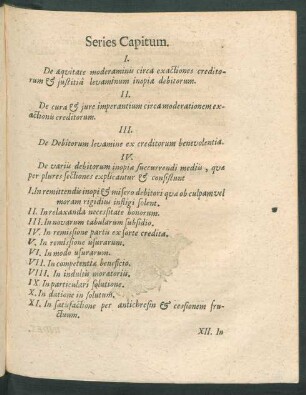 Series Capitum.
I.
De aqvitate moderaminis circa exactiones credito-
rum & justitiâ levaminum inopia debitorum.
II.
De cura & jure imperantium circa moderationem ex-
actionis creditorum.
III.
De Debitorum levamine ex creditorum benevolentia.
IV.
De variis debitorum inopia succurrendi mediis, qva
per plures sectiones explicantur & consistunt
I. In remittendis inopi & misero debitori qva ob culpam vel
moram rigidius infligi solent.
II. In relaxanda necessitate bonorum.
III. In novarum tabularum subsidio.
IV. In remissione partis ex sorte credita.
V. In remissione usurarum.
VI. In modo usurarum.
VII. In competentia beneficio.
VIII. In indultis moratoriis.
IX. In particulari solutione.
X. In datione in solutum.
XI. In satisfactione per antichresin & cessionem fru-
ctuum.
XII. In